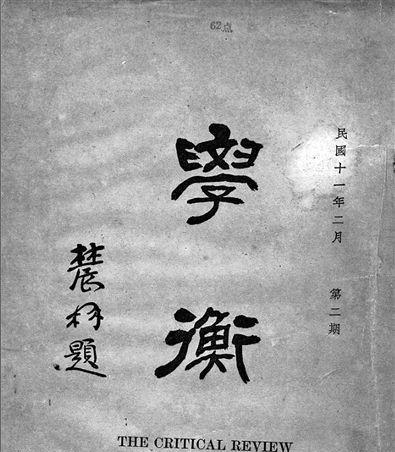 62点
民國十一年二月 第二期
學衡
農髯題
THE CRITICAL REVIEW